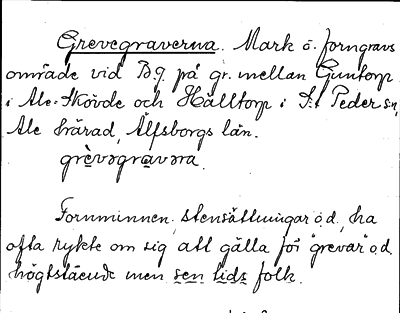 Grevegraverna. Mark o. forngravs
område vid B.g. på gr. mellan Guntorp
i Ale-Skövde och Hälltorp i S:t Peder sn,
Ale härad, Älfsborgs län.
grèvəgravəra.
Fornminnen, stensättningar o.d., ha
ofta rykte om sig att gälla för "grevar" o.d.
högtstående men sen tids folk.